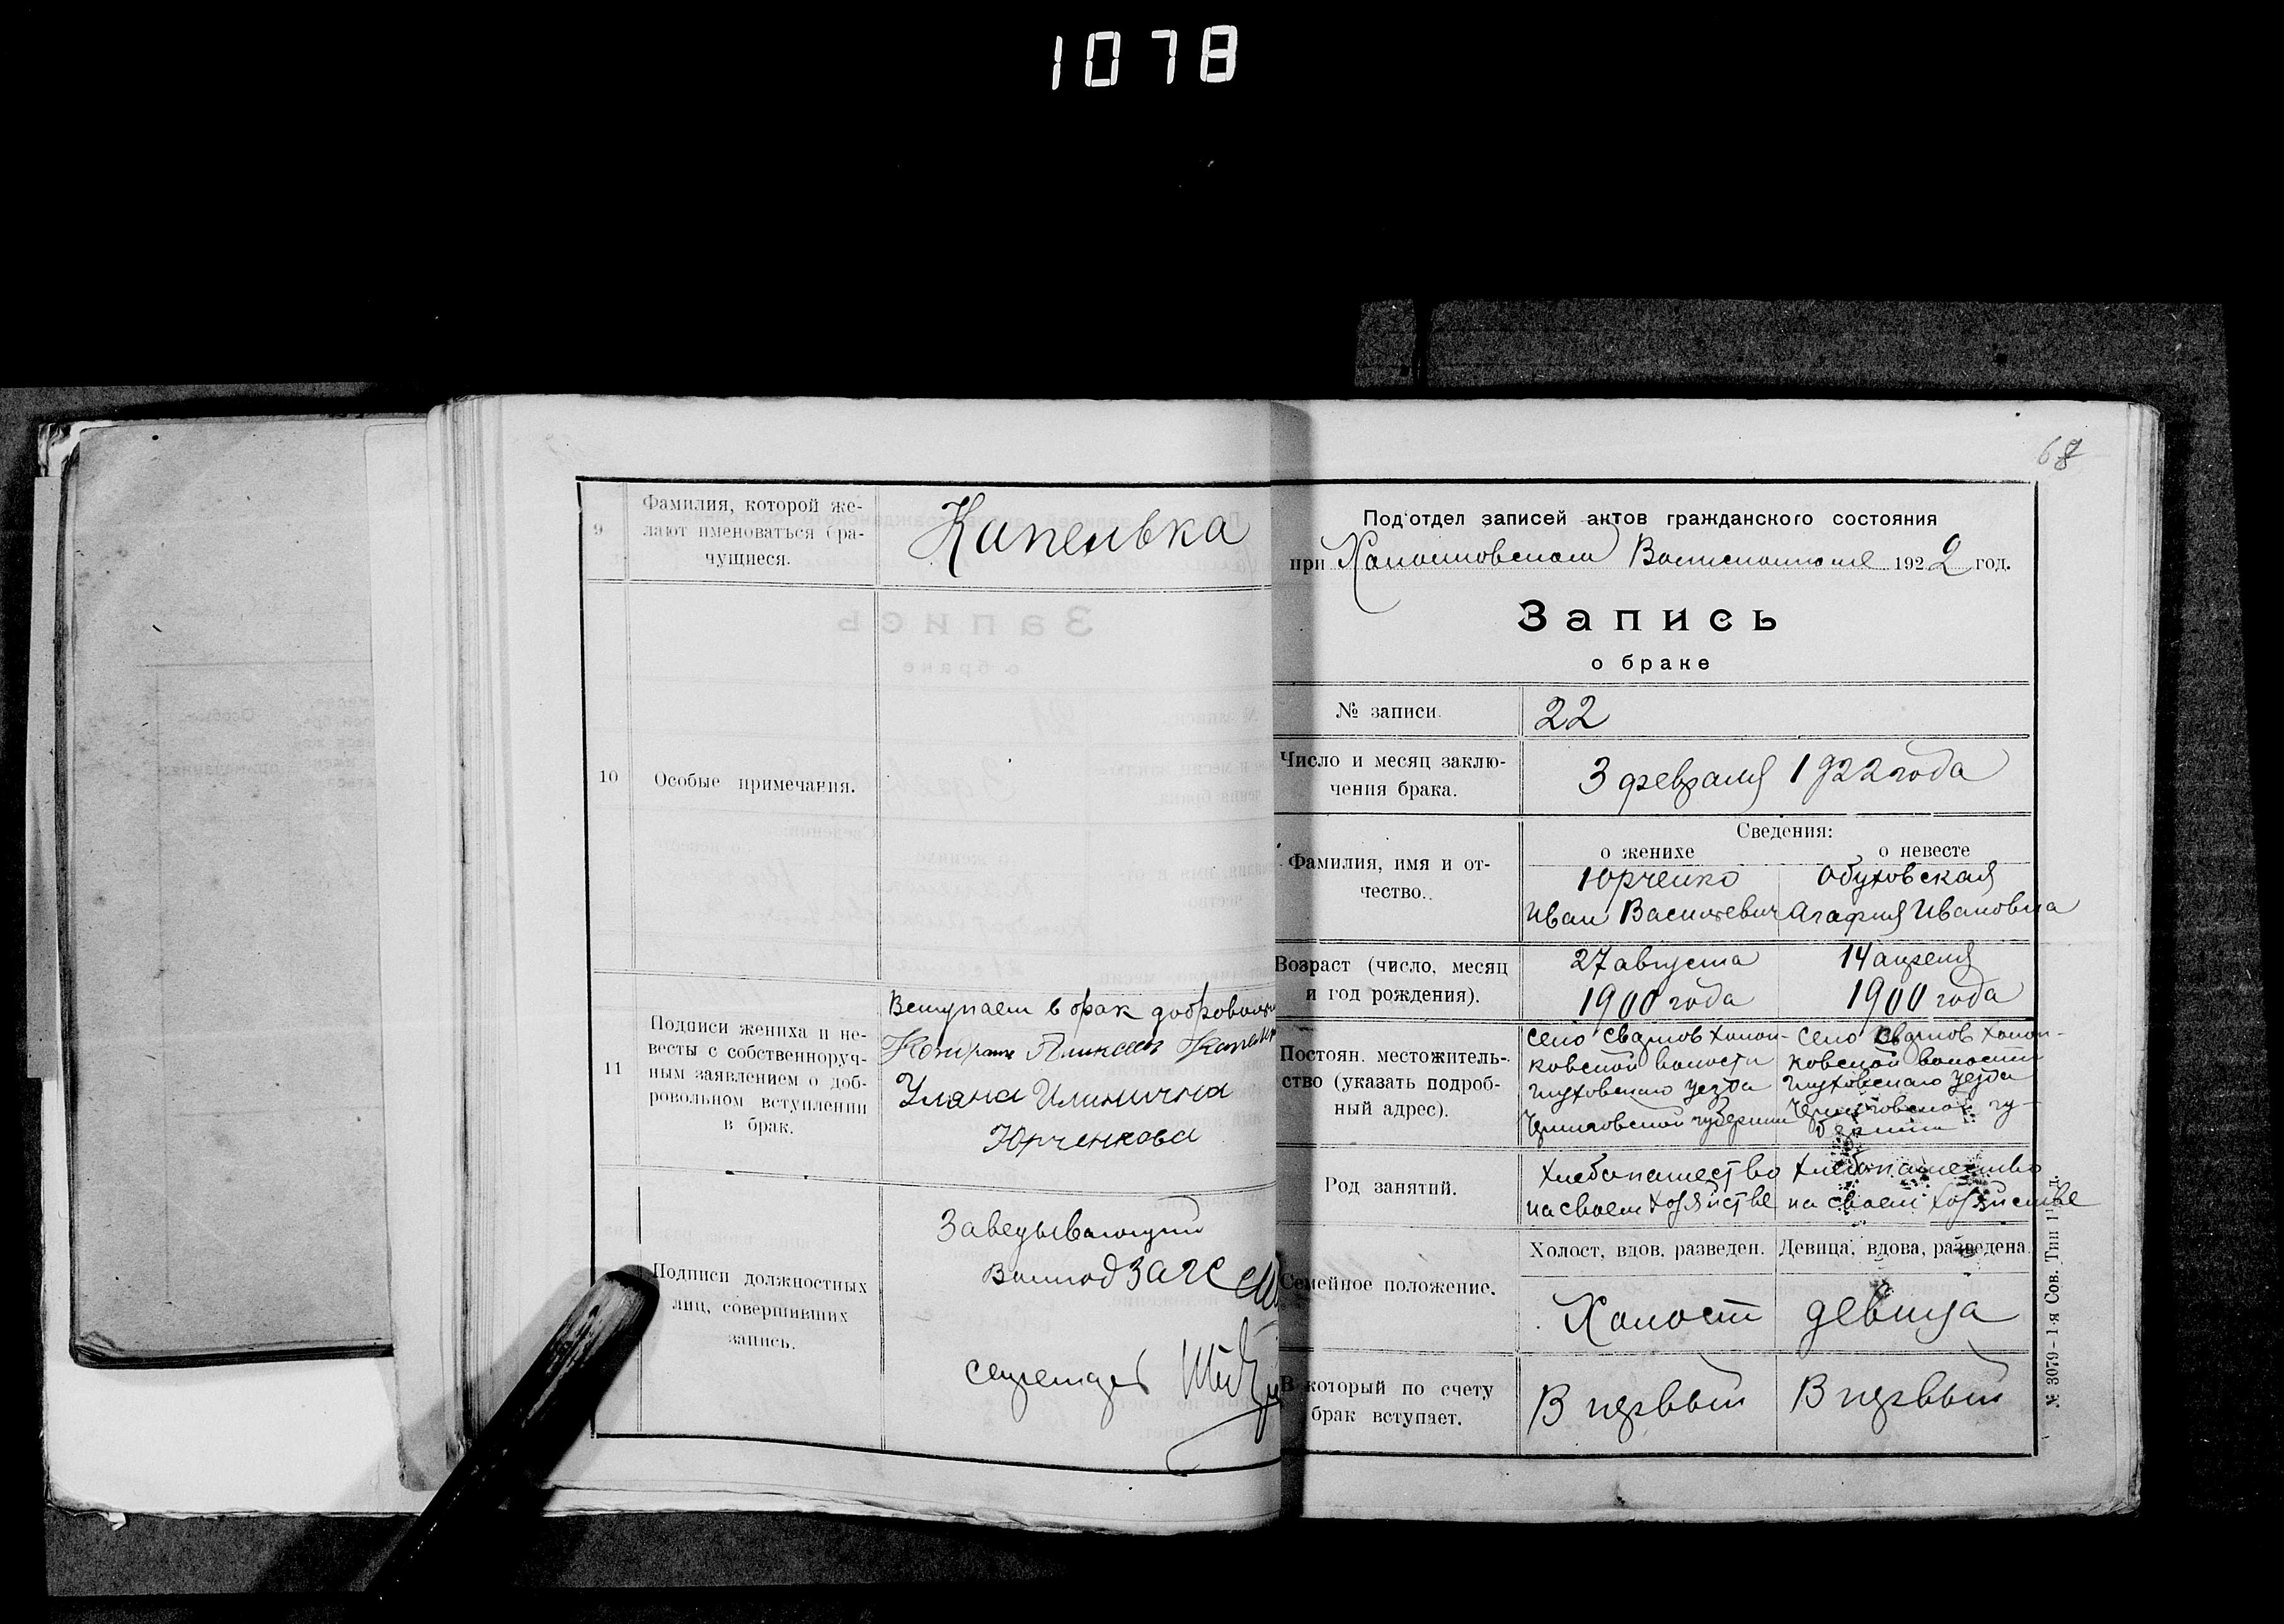 1078
68
9
Фамилия, которой же-
лают именоваться бра-
чущиеся.
Капелька
10
Особые примечания.
11
Подписи жениха и не-
весты с собственноруч-
ным заявлением о доб-
ровольном вступлении
в брак.
Вступаем в брак добровольно
Уляна Илинична
Юрченкова
Подписи должностных
лиц, совершивших
запись.
Заведывающий
ЗАГС
секретарь
Под'отдел записей актов гражданского состояния
при 1922 год.
Запись
о браке
№ записи. 22
Число и месяц заклю-
чения брака.
3 февраля 1922 года
Сведения:
о женихе о невесте
Фамилия, имя и от-
чество..
Юрченко
Иван Васильевич
Обуховская
Агафия Ивановна
Возраст (число, месяц
и год рождения).
27 августа
1900 года
14 апреля
1900 года
Постоян. местожитель-
ство (указать подроб-
ный адрес).
село Сварков Холоп-
ковской волости
Глуховского уезда
Черниговской губернии
село Сварков Холоп-
ковской волости
Глуховского уезда
Черниговской гу-
бернии
Род занятий.
Хлебопашество
на своем хозяйстве
Хлебопашество
на своем хозяйстве
Семейное положение.
Холост, вдов, разведен.
Девица, вдова, разведена.
Холост
девица
В который по счету
брак вступает.
В первый
В первый
№ 3079-1-я Сов. Тип